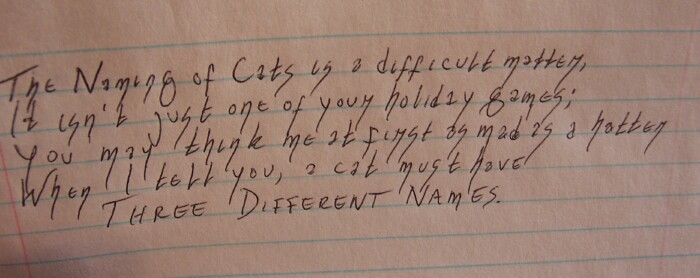 The Naming of Cats is a difficult matter,
It isn't just one of your holiday games;
You may think me at first as mad as a hatter
When I tell you, a cat must have
THREE DIFFERENT NAMES.